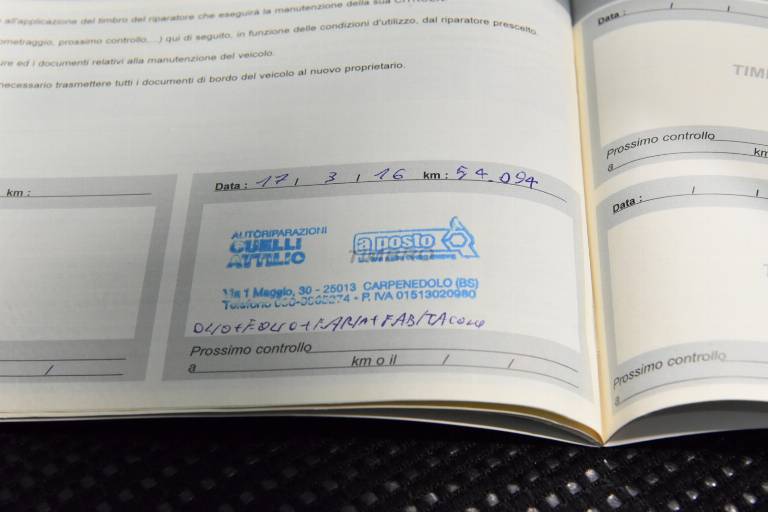 all'applicazione del timbro del riparatore che eseguirà la manutenzione della sua
ometraggio, prossimo controllo,...) qui di seguito, in funzione delle condizioni d'utilizzo, dal riparatore prescelto.
ire ed i documenti relativi alla manutenzione del veicolo.
necessario trasmettere tutti i documenti di bordo del veicolo al nuovo proprietario.
km :
/
Data : 17 / 3 / 16 km : 54.094
AUTORIPARAZIONI
GUELLI
ATTILIO
a posto
TIMBRO
Via 1 Maggio, 30 - 25013 CARPENEDOLO (BS)
Telefono - P. IVA 01513020980
OLIO+FOLIO+FARIA+FABITACOLO
Prossimo controllo
a km o il / /
Data : / /
TIM
Prossimo controllo
a km
Data : / /
Prossimo controllo
a